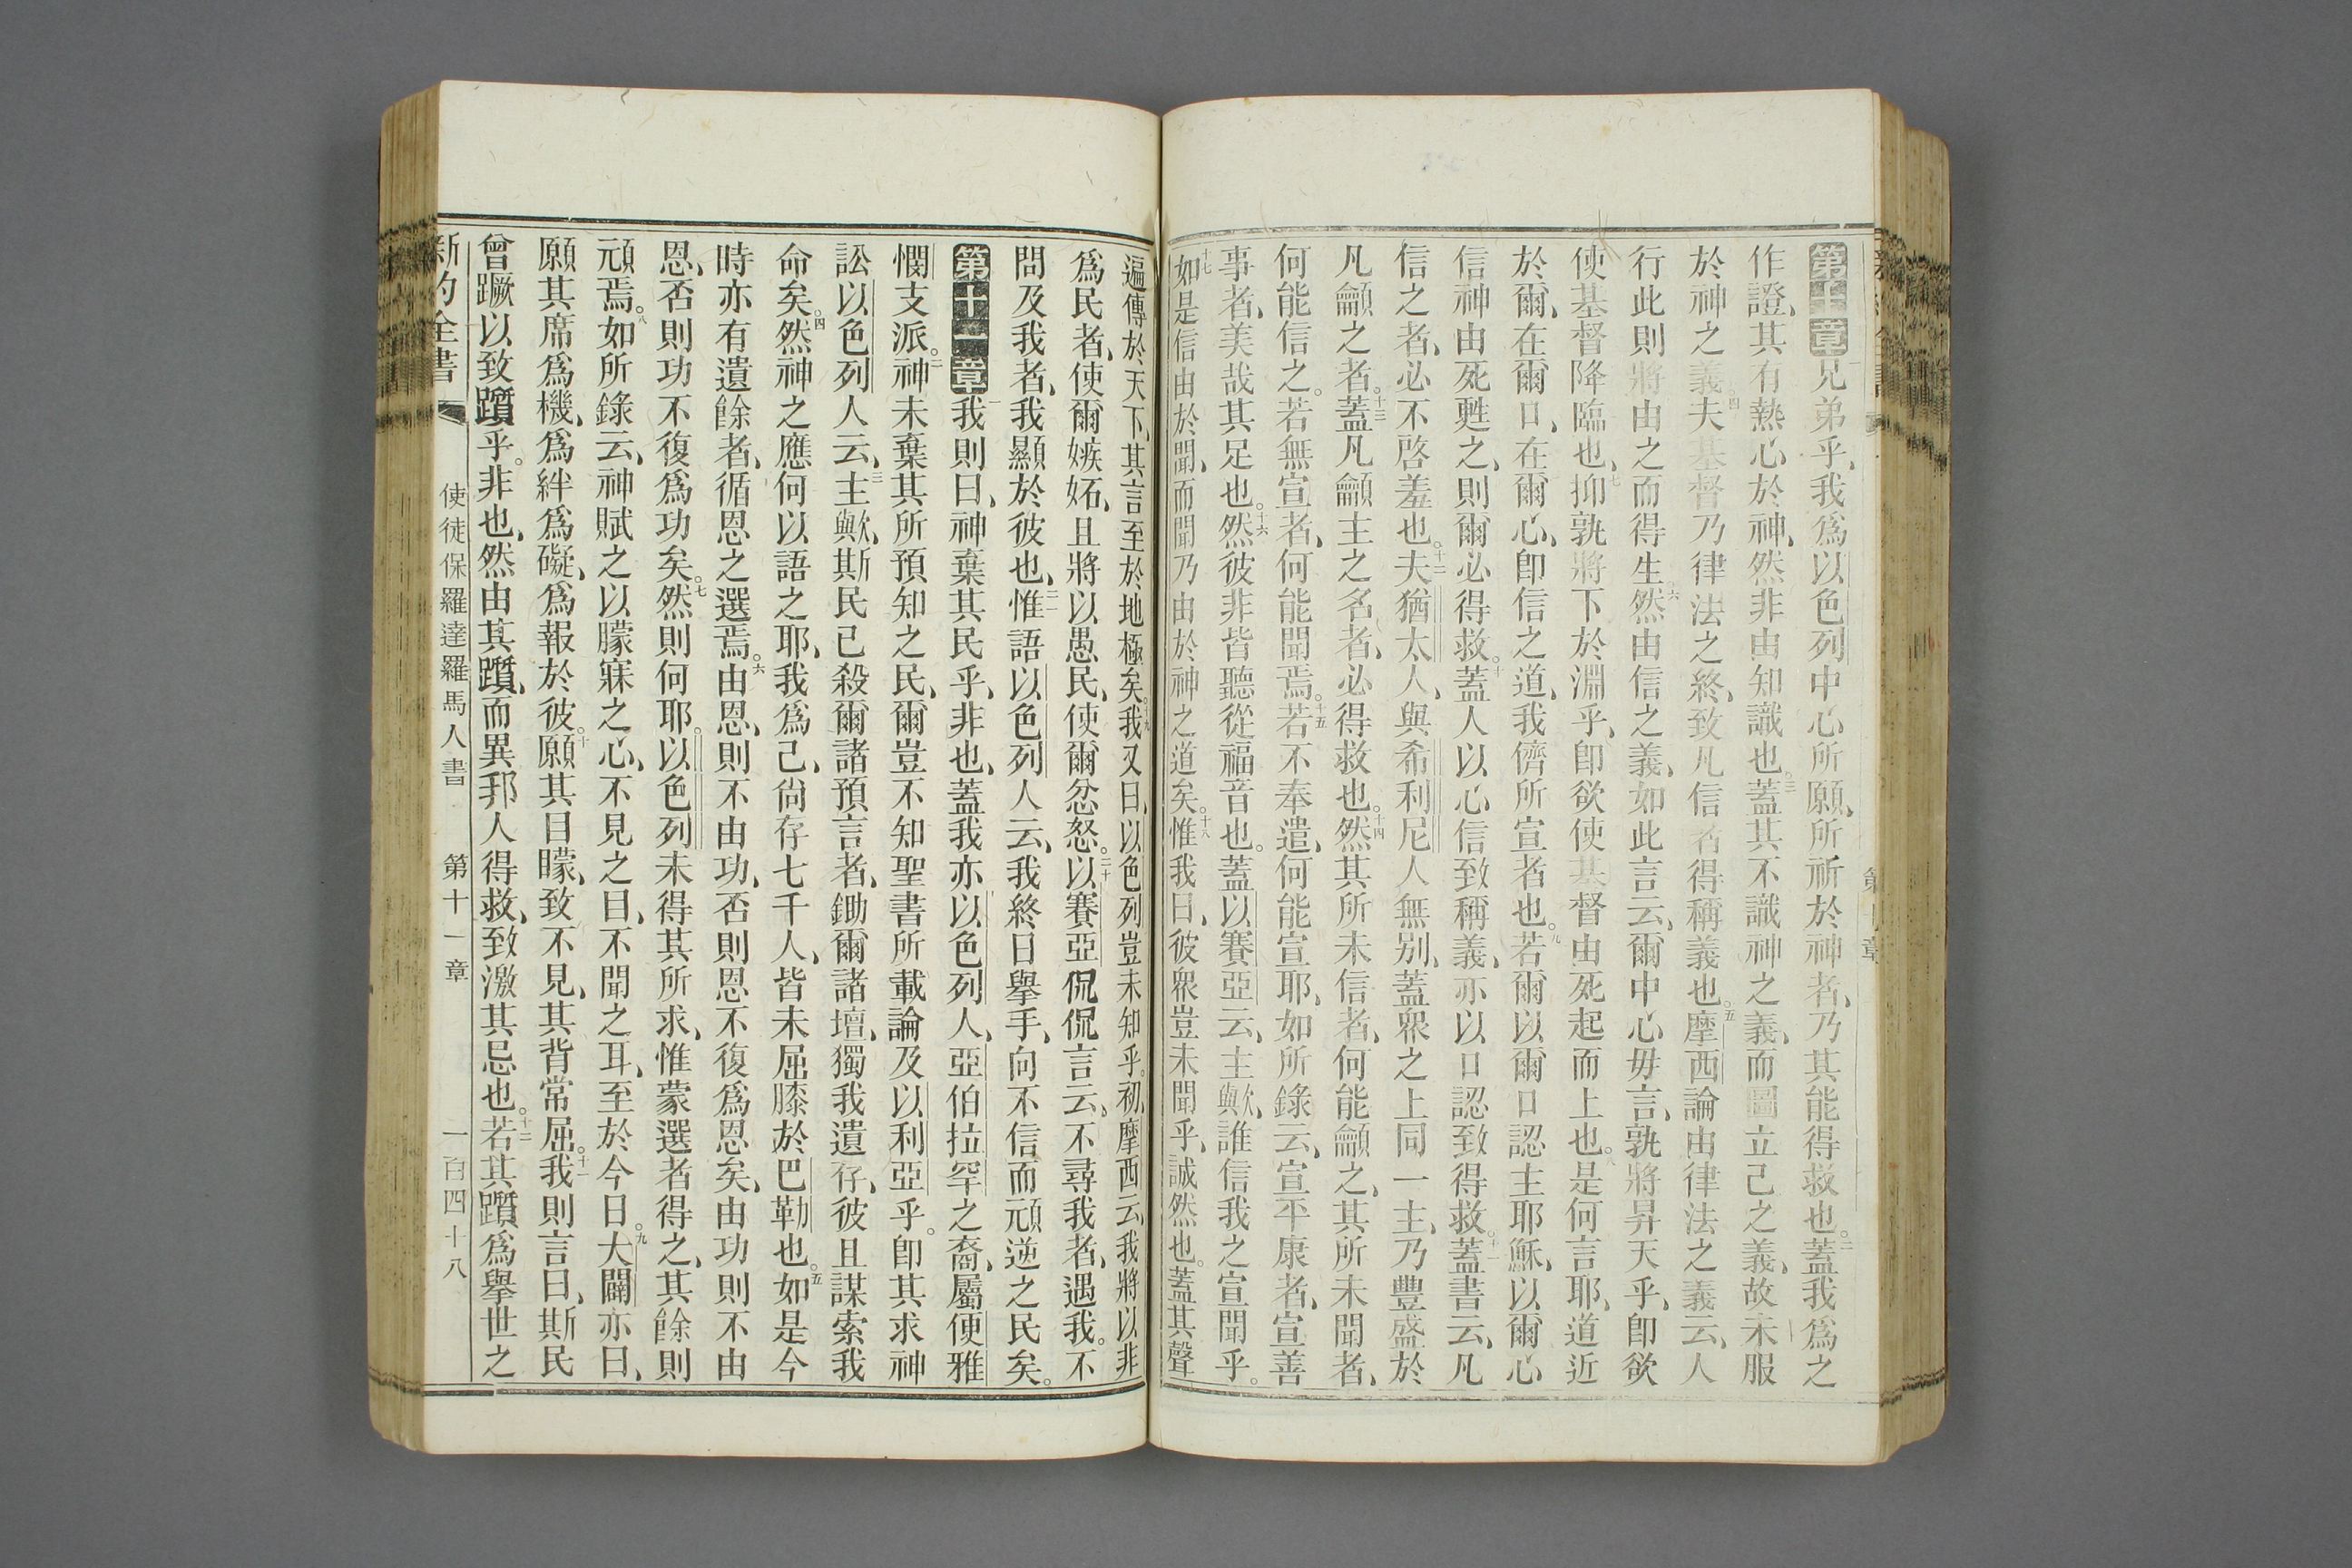 第十章一兄弟乎、我爲以色列中心所願、所祈於神者、乃其能得救也。二蓋我爲之
作證、其有熱心於神、然非由知識也。三蓋其不識神之義、而圖立己之義、故未服
於神之義。四夫基督乃律法之終、致凡信者得稱義也。五摩西論由律法之義云、人
行此則將由之而得生。六然由信之義、如此言云、爾中心毋言、孰將昇天乎、卽欲
使基督降臨也、七抑孰將下於淵乎、卽欲使基督由死起而上也。八是何言耶、道近
於爾、在爾口、在爾心、卽信之道、我儕所宣者也。九若爾以爾口認主耶穌、以爾心
信神由死甦之、則爾必得救。十蓋人以心信致稱義、亦以口認致得救。十一蓋書云、凡
信之者、必不啓羞也。十二夫猶太人、與希利尼人無別、蓋衆之上同一主、乃豐盛於
凡龥之者。十三蓋凡龥主之名者、必得救也。十四然其所未信者、何能龥之、其所未聞者、
何能信之。若無宣者、何能聞焉。十五若不奉遣、何能宣耶、如所錄云、宣平康者、宣善
事者、美哉其足也。十六然彼非皆聽從福音也。蓋以賽亞云、主歟、誰信我之宣聞乎。
十七如是信由於聞、而聞乃由於神之道矣。十八惟我曰、彼衆豈未聞乎、誠然也。蓋其聲
遍傳於天下、其言至於地極矣。十九我又曰、以色列豈未知乎。初摩西云、我將以非
爲民者、使爾嫉妬、且將以愚民、使爾忿怒。二十以賽亞侃侃言云、不尋我者、遇我。不
問及我者、我顯於彼也、二一惟語以色列人云、我終日擧手、向不信而頑逆之民矣。
第十一章一我則曰、神棄其民乎、非也、蓋我亦以色列人、亞伯拉罕之裔、屬便雅
憫支派。二神未棄其所預知之民、爾豈不知聖書所載論及以利亞乎。卽其求神
訟以色列人云、三主歟、斯民已殺爾諸預言者、鋤爾諸壇、獨我遺存、彼且謀索我
命矣。四然神之應何以語之耶、我爲己、尙存七千人、皆未屈膝於巴勒也。五如是今
時亦有遺餘者、循恩之選焉。六由恩、則不由功、否則恩不復爲恩矣、由功則不由
恩、否則功不復爲功矣。七然則何耶。以色列未得其所求、惟蒙選者得之、其餘則
頑焉。八如所錄云、神賦之以朦寐之心、不見之目、不聞之耳、至於今日。九大闢亦曰、
願其席爲機、爲絆爲礙、爲報於彼。十願其目矇、致不見、其背常屈。十一我則言曰、斯民
曾蹶以致躓乎。非也、然由其躓、而異邦人得救、致激其忌也。十二若其躓爲擧世之
新約全書 使徒保羅達羅馬人書 第十一章 一百四十八